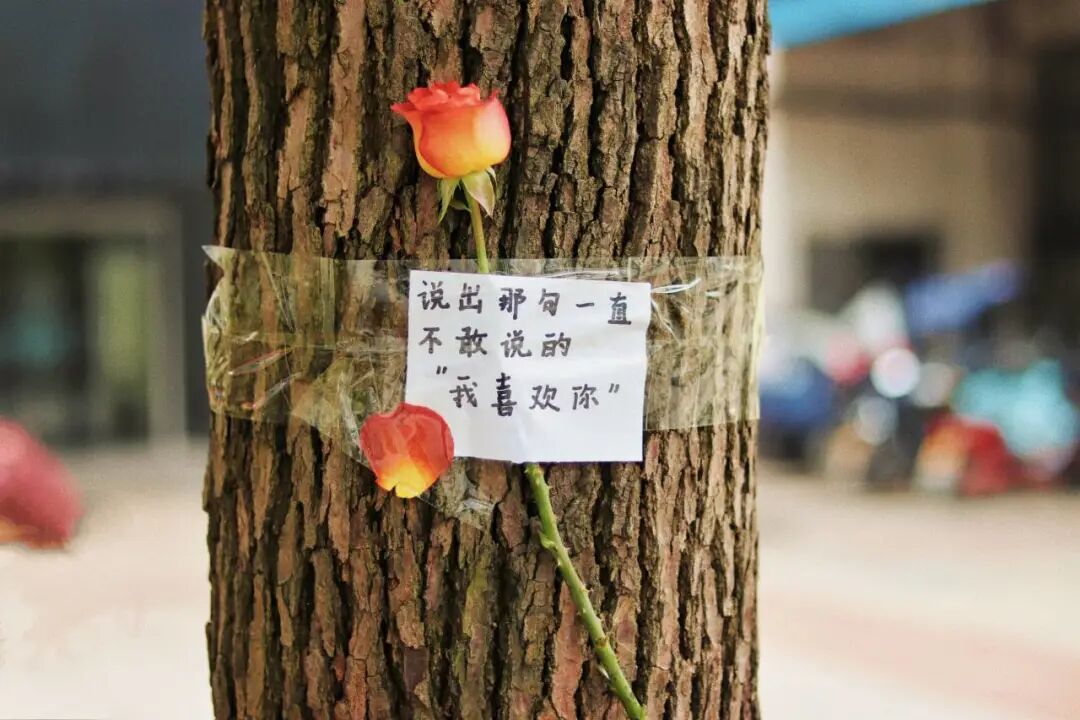 说出那句一直
不敢说的
"我喜欢你"